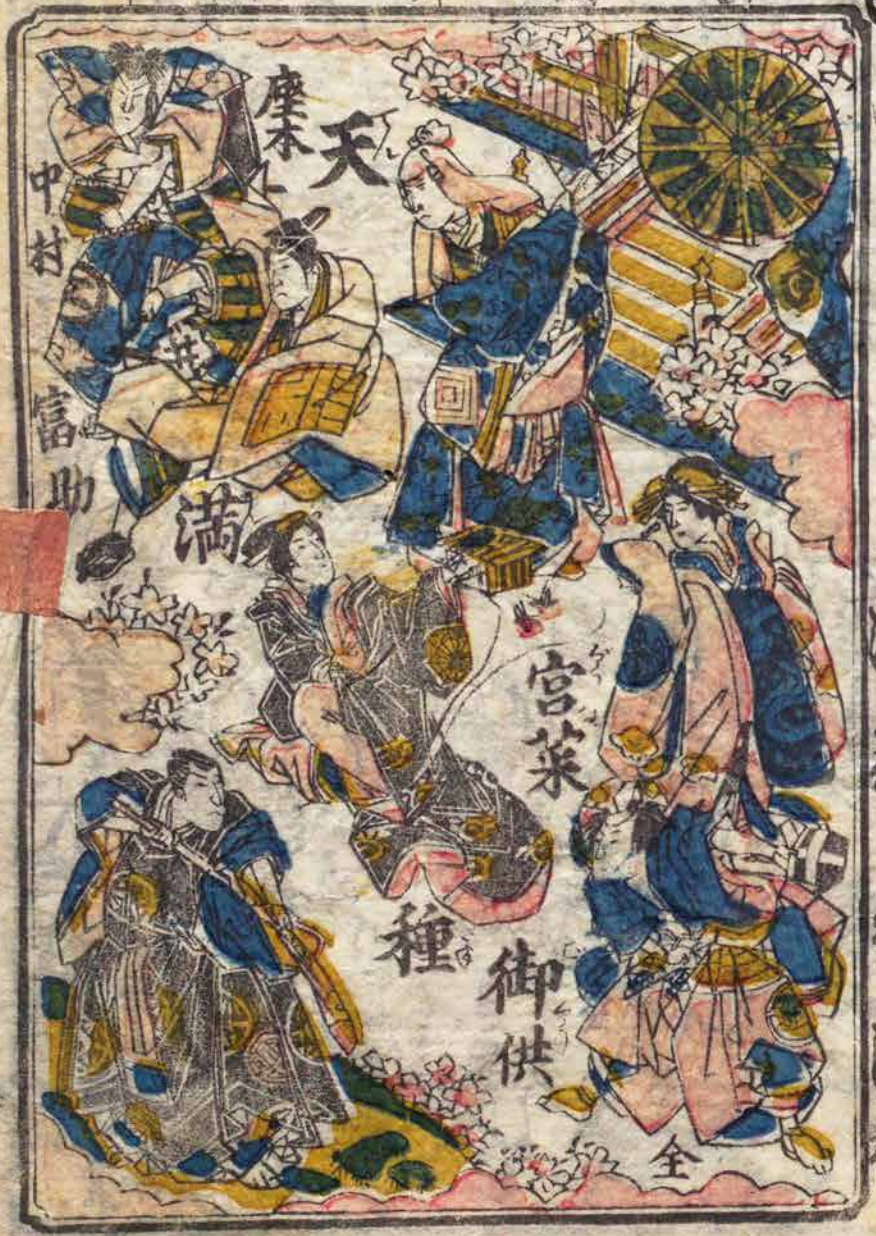 天
満
宮菜
種
御供
全
座本
中村
富助